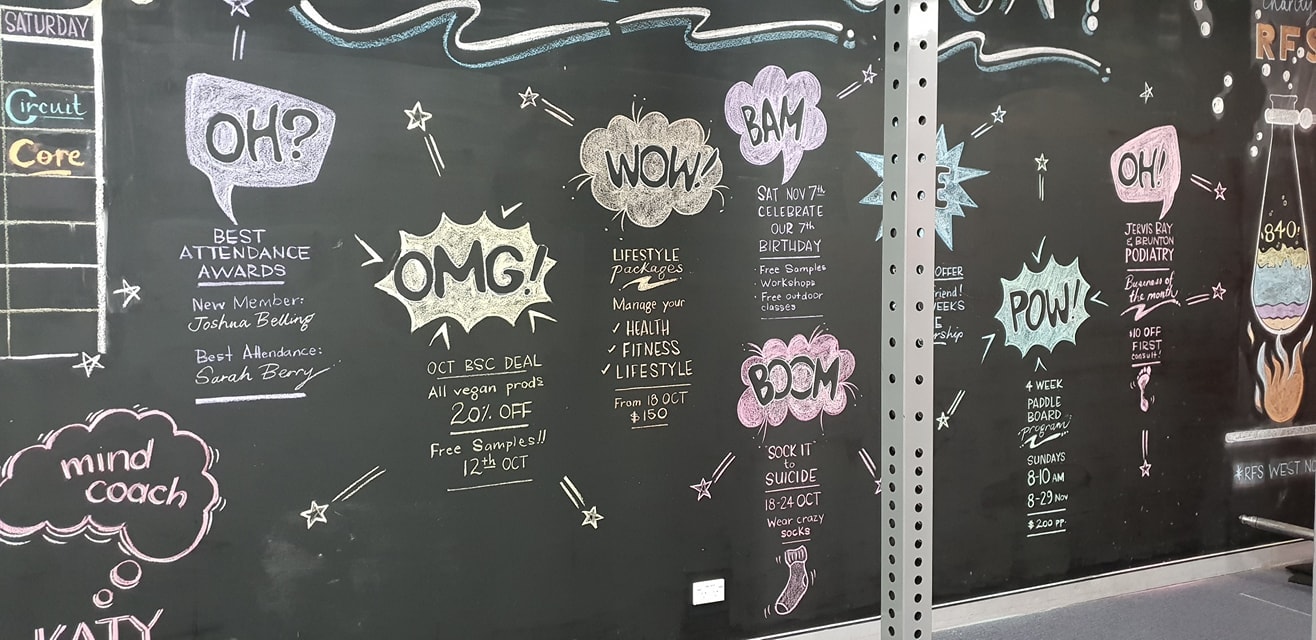 SATURDAY
Circuit
Core
OH?
BEST
ATTENDANCE
AWARDS
New Member:
Joshua Belling
Best Attendance:
Sarah Berry
mind
coach
KATY
OMG!
OCT BSC DEAL
All vegan prods
20% OFF
Free Samples!!
12th OCT
WOW!
LIFESTYLE
packages
Manage your
✓ HEALTH
✓ FITNESS
✓ LIFESTYLE
From 18 OCT
$150
BAM
SAT NOV 7th
CELEBRATE
OUR 7th
BIRTHDAY
· Free Samples
· Workshops
· Free outdoor
classes
BOOM
SOCK IT
to
SUICIDE
18-24 OCT
Wear crazy
socks
E
OFFER
riend!
EEKS
E
rship
POW!
4 WEEK
PADDLE
BOARD
program
SUNDAYS
8-10 AM
8-29 Nov
$200 PP.
OH!
JERVIS BAY
& BRUNTON
PODIATRY
Business of
the month
$10 OFF
FIRST
consult!
Charity
RFS
840
#RFS WEST N